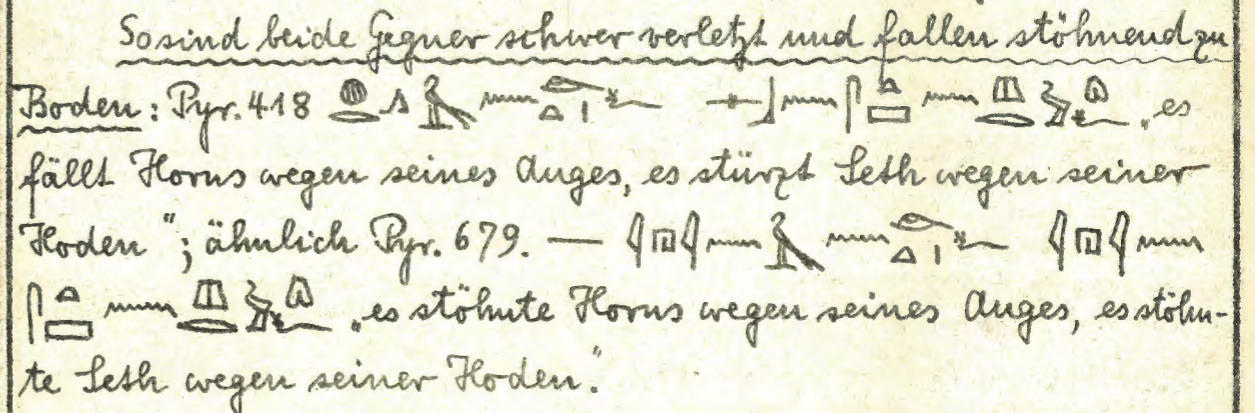 So sind beide Gegner schwer verletzt und fallen stöhnend zu
Boden: Pyr. 418 𓐍𓂋𓂻𓅃 𓈖 𓏏𓏤𓆑 𓊃𓃀𓈖 𓋴𓏏𓈙 𓈖 𓆑 „es
fällt Horus wegen seines Auges, es stürzt Seth wegen seiner
Hoden“; ähnlich Pyr. 679. — 𓇋𓉔𓇋𓈖𓅃 𓈖 𓏏𓏤𓆑 𓇋𓉔𓇋𓈖
𓋴𓏏𓈙 𓈖 𓆑 „es stöhnte Horus wegen seines Auges, es stöhn-
te Seth wegen seiner Hoden.“